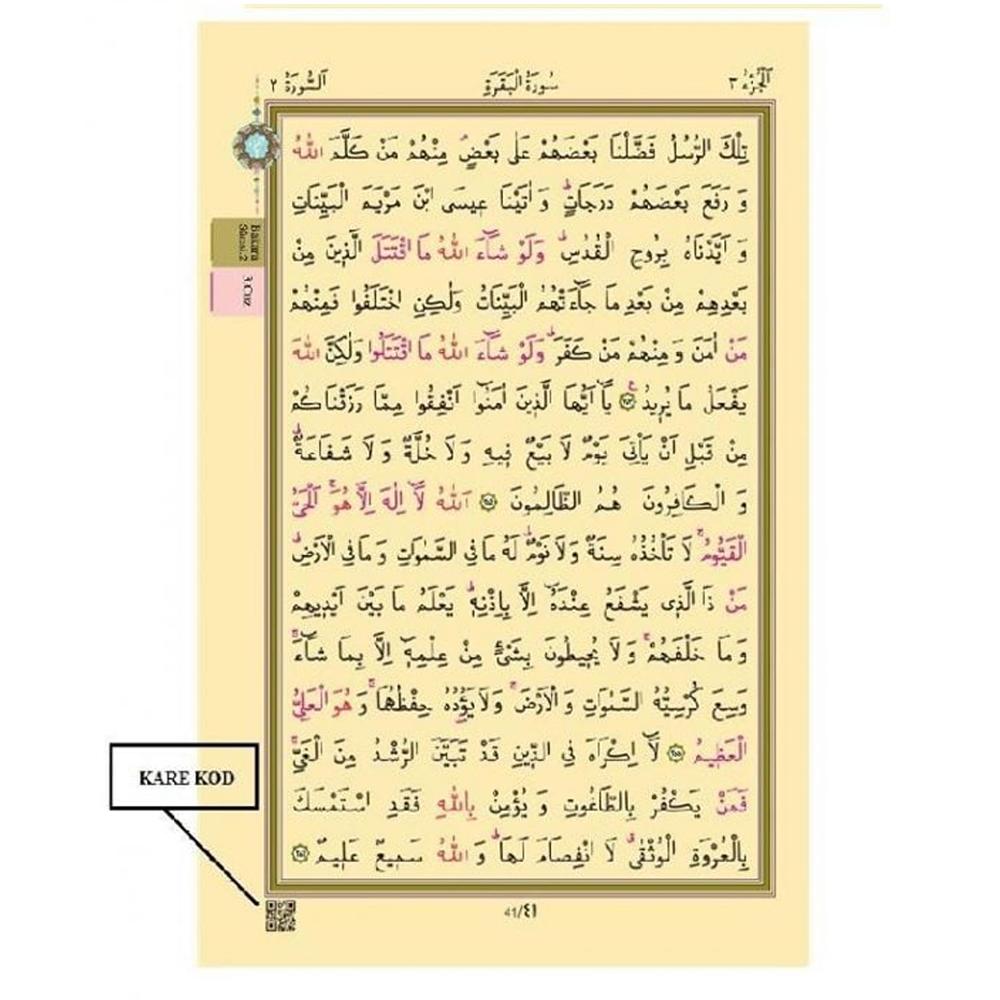 اَلْجُزْءُ ٣
سُورَةُ الْبَقَرَةِ
اَلسُّورَةُ ٢
تِلْكَ الرُّسُلُ فَضَّلْنَا بَعْضَهُمْ عَلٰى بَعْضٍۢ مِنْهُمْ مَنْ كَلَّمَ اللّٰهُ
وَ رَفَعَ بَعْضَهُمْ دَرَجَاتٍۜ وَ اٰتَيْنَا عٖيسَى ابْنَ مَرْيَمَ الْبَيِّنَاتِ
وَ اَيَّدْنَاهُ بِرُوحِ الْقُدُسِۜ وَلَوْ شَٓاءَ اللّٰهُ مَا اقْتَتَلَ الَّذٖينَ مِنْ
بَعْدِهِمْ مِنْ بَعْدِ مَا جَٓاءَتْهُمُ الْبَيِّنَاتُ وَلٰكِنِ اخْتَلَفُوا فَمِنْهُمْ
مَنْ اٰمَنَ وَ مِنْهُمْ مَنْ كَفَرَۜ وَلَوْ شَٓاءَ اللّٰهُ مَا اقْتَتَلُوا وَلٰكِنَّ اللّٰهَ
يَفْعَلُ مَا يُرٖيدُࣖ ﴿٢٥٣﴾ يَٓا اَيُّهَا الَّذٖينَ اٰمَنُٓوا اَنْفِقُوا مِمَّا رَزَقْنَاكُمْ
مِنْ قَبْلِ اَنْ يَأْتِيَ يَوْمٌ لَا بَيْعٌ فٖيهِ وَ لَا خُلَّةٌ وَ لَا شَفَاعَةٌۜ
وَ الْكَافِرُونَ هُمُ الظَّالِمُونَ ﴿٢٥٤﴾ اَللّٰهُ لَٓا اِلٰهَ اِلَّا هُوَۚ اَلْحَيُّ
الْقَيُّومُۚ لَا تَأْخُذُهُ سِنَةٌ وَ لَا نَوْمٌۜ لَهُ مَا فِي السَّمٰوَاتِ وَ مَا فِي الْاَرْضِۜ
مَنْ ذَا الَّذٖى يَشْفَعُ عِنْدَهُٓ اِلَّا بِاِذْنِهٖۜ يَعْلَمُ مَا بَيْنَ اَيْدٖيهِمْ
وَ مَا خَلْفَهُمْۚ وَ لَا يُحٖيطُونَ بِشَيْءٍ مِنْ عِلْمِهٖٓ اِلَّا بِمَا شَٓاءَۚ
وَسِعَ كُرْسِيُّهُ السَّمٰوَاتِ وَ الْاَرْضَۚ وَ لَا يَؤُدُهُ حِفْظُهُمَاۚ وَ هُوَ الْعَلِيُّ
الْعَظٖيمُ ﴿٢٥٥﴾ لَٓا اِكْرَاهَ فِي الدّٖينِ قَدْ تَبَيَّنَ الرُّشْدُ مِنَ الْغَيِّۚ
فَمَنْ يَكْفُرْ بِالطَّاغُوتِ وَ يُؤْمِنْ بِاللّٰهِ فَقَدِ اسْتَمْسَكَ
بِالْعُرْوَةِ الْوُثْقٰىۗ لَا انْفِصَامَ لَهَاۜ وَ اللّٰهُ سَمٖيعٌ عَلٖيمٌ ﴿٢٥٦﴾
Bakara
Sûresi:2
3.Cüz
KARE KOD
41/٤١